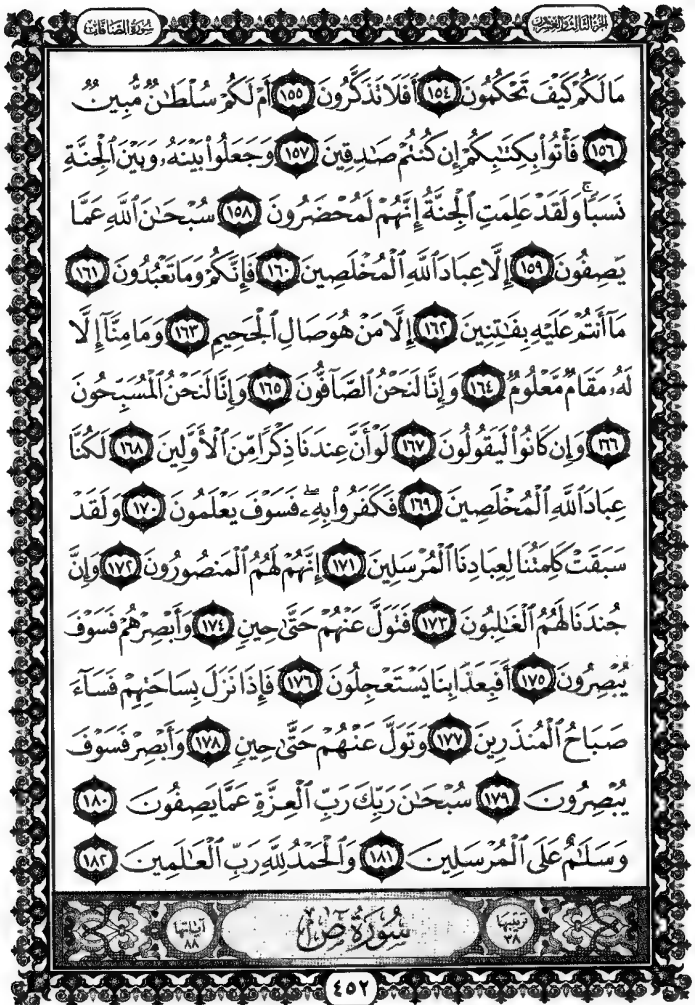 سُورَةُ الصَّافَّاتِ
الجُزْءُ الثَّالِثُ وَالعِشْرُونَ
مَا لَكُمْ كَيْفَ تَحْكُمُونَ ١٥٤ أَفَلَا تَذَكَّرُونَ ١٥٥ أَمْ لَكُمْ سُلْطَٰنٌ مُّبِينٌ
١٥٦ فَأْتُوا۟ بِكِتَٰبِكُمْ إِن كُنتُمْ صَٰدِقِينَ ١٥٧ وَجَعَلُوا۟ بَيْنَهُۥ وَبَيْنَ ٱلْجِنَّةِ
نَسَبًا ۚ وَلَقَدْ عَلِمَتِ ٱلْجِنَّةُ إِنَّهُمْ لَمُحْضَرُونَ ١٥٨ سُبْحَٰنَ ٱللَّهِ عَمَّا
يَصِفُونَ ١٥٩ إِلَّا عِبَادَ ٱللَّهِ ٱلْمُخْلَصِينَ ١٦٠ فَإِنَّكُمْ وَمَا تَعْبُدُونَ ١٦١
مَآ أَنتُمْ عَلَيْهِ بِفَٰتِنِينَ ١٦٢ إِلَّا مَنْ هُوَ صَالِ ٱلْجَحِيمِ ١٦٣ وَمَا مِنَّآ إِلَّا
لَهُۥ مَقَامٌ مَّعْلُومٌ ١٦٤ وَإِنَّا لَنَحْنُ ٱلصَّآفُّونَ ١٦٥ وَإِنَّا لَنَحْنُ ٱلْمُسَبِّحُونَ
١٦٦ وَإِن كَانُوا۟ لَيَقُولُونَ ١٦٧ لَوْ أَنَّ عِندَنَا ذِكْرًا مِّنَ ٱلْأَوَّلِينَ ١٦٨ لَكُنَّا
عِبَادَ ٱللَّهِ ٱلْمُخْلَصِينَ ١٦٩ فَكَفَرُوا۟ بِهِۦ ۖ فَسَوْفَ يَعْلَمُونَ ١٧٠ وَلَقَدْ
سَبَقَتْ كَلِمَتُنَا لِعِبَادِنَا ٱلْمُرْسَلِينَ ١٧١ إِنَّهُمْ لَهُمُ ٱلْمَنصُورُونَ ١٧٢ وَإِنَّ
جُندَنَا لَهُمُ ٱلْغَٰلِبُونَ ١٧٣ فَتَوَلَّ عَنْهُمْ حَتَّىٰ حِينٍ ١٧٤ وَأَبْصِرْهُمْ فَسَوْفَ
يُبْصِرُونَ ١٧٥ أَفَبِعَذَابِنَا يَسْتَعْجِلُونَ ١٧٦ فَإِذَا نَزَلَ بِسَاحَتِهِمْ فَسَآءَ
صَبَاحُ ٱلْمُنذَرِينَ ١٧٧ وَتَوَلَّ عَنْهُمْ حَتَّىٰ حِينٍ ١٧٨ وَأَبْصِرْ فَسَوْفَ
يُبْصِرُونَ ١٧٩ سُبْحَٰنَ رَبِّكَ رَبِّ ٱلْعِزَّةِ عَمَّا يَصِفُونَ ١٨٠
وَسَلَٰمٌ عَلَى ٱلْمُرْسَلِينَ ١٨١ وَٱلْحَمْدُ لِلَّهِ رَبِّ ٱلْعَٰلَمِينَ ١٨٢
ترتيبها ٣٨
سُورَةُ صٓ
آياتها ٨٨
٤٥٢